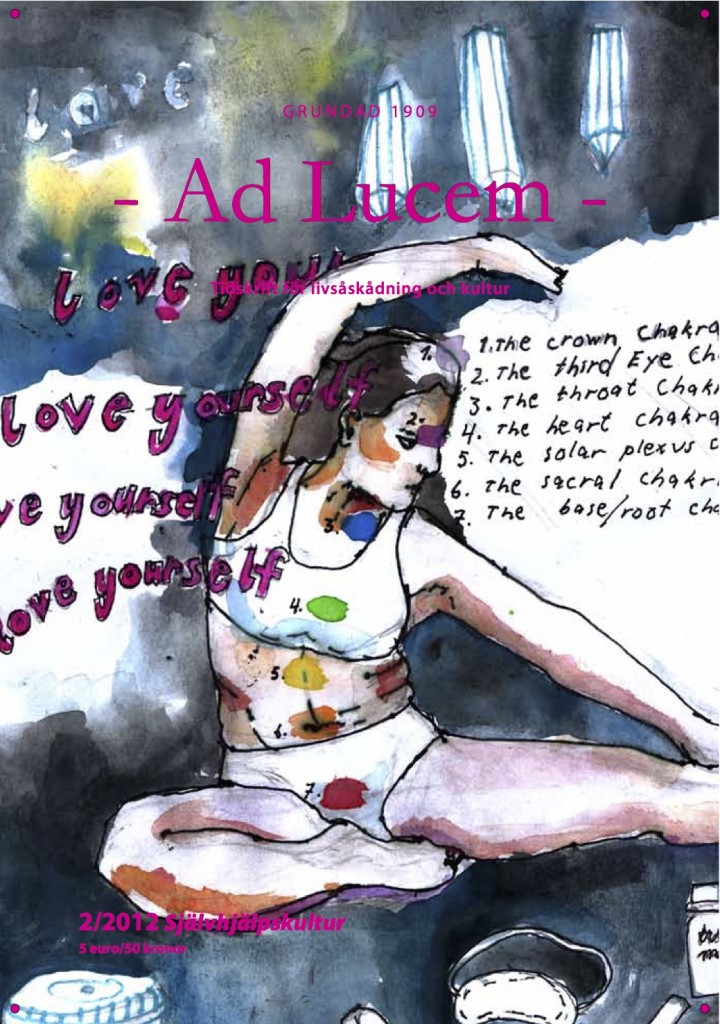 Love
GRUNDAD 1909
- Ad Lucem -
Love your
Tidskrift för livsåskådning och kultur
1. The crown chakra
2. The third Eye Ch
3. The throat Chak
4. The heart chakra
5. The solar plexus c
6. The sacral chakr
7. The base/root cha
Love yourself
ve yourself
love yourself
1.
2.
3.
4.
5.
6.
7.
2/2012 Självhjälpskultur
5 euro/50 kronor